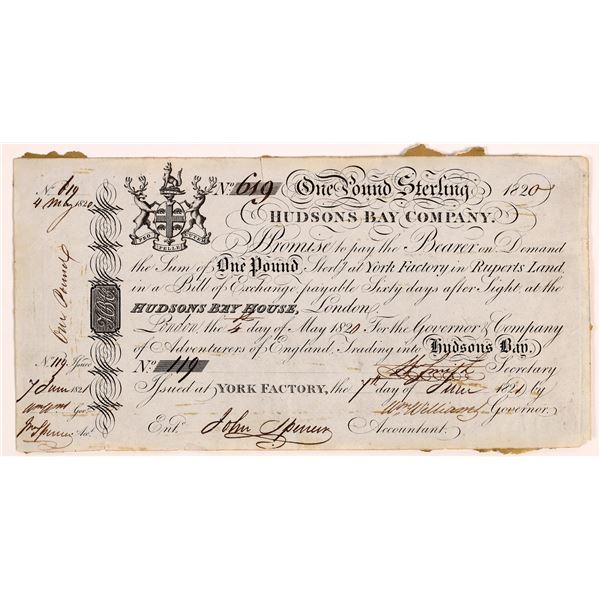 No. 619
4 May 1820
One Pound
No. 119 Issued
7 June 1821
Wm Wms Govr.
Jno Spencer Acct.
PRO PELLE CUTEM
No. 619 One Pound Sterling 1820
HUDSONS BAY COMPANY.
I Promise to pay the Bearer on Demand
the Sum of One Pound Sterlg at York Factory in Ruperts Land,
in a Bill of Exchange payable Sixty days after Sight, at the
HUDSONS BAY HOUSE, London.
London, the 4 day of May 1820 For the Governor & Company
of Adventurers of England, Trading into Hudsons Bay.
No. 119 Smith Secretary
Issued at YORK FACTORY, the 7th day of June 1821 by
Wm Williams Governor.
Entd. John Spencer Accountant.